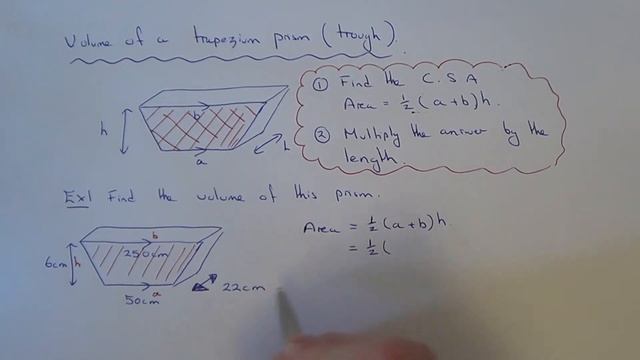 Volume of a trapezium prism (trough).
① Find the C.S.A
Area = ½(a+b)h.
② Multiply the answer by the
length.
h
b
a
L
Ex1 Find the volume of this prism.
Area = ½(a+b)h
= ½(
b
6cm h
50cm a
22cm